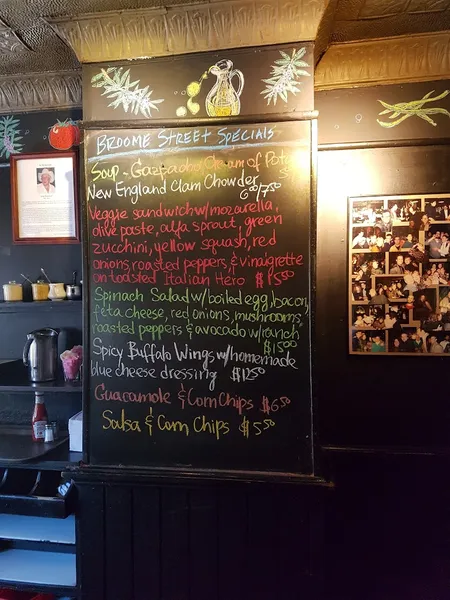 BROOME STREET SPECIALS
Soup - Gazpacho / Cream of Potato
New England Clam Chowder 6⁰⁰/7⁵⁰
Veggie sandwich w/ mozarella,
olive paste, alfa sprout, green
zucchini, yellow squash, red
onions, roasted peppers, & vinaigrette
on toasted Italian Hero $15⁵⁰
Spinach Salad w/ boiled egg, bacon,
feta cheese, red onions, mushrooms,
roasted peppers & avocado w/ ranch
$15⁰⁰
Spicy Buffalo Wings w/ homemade
blue cheese dressing $12⁵⁰
Guacamole & Corn Chips $6⁵⁰
Salsa & Corn Chips $5⁵⁰